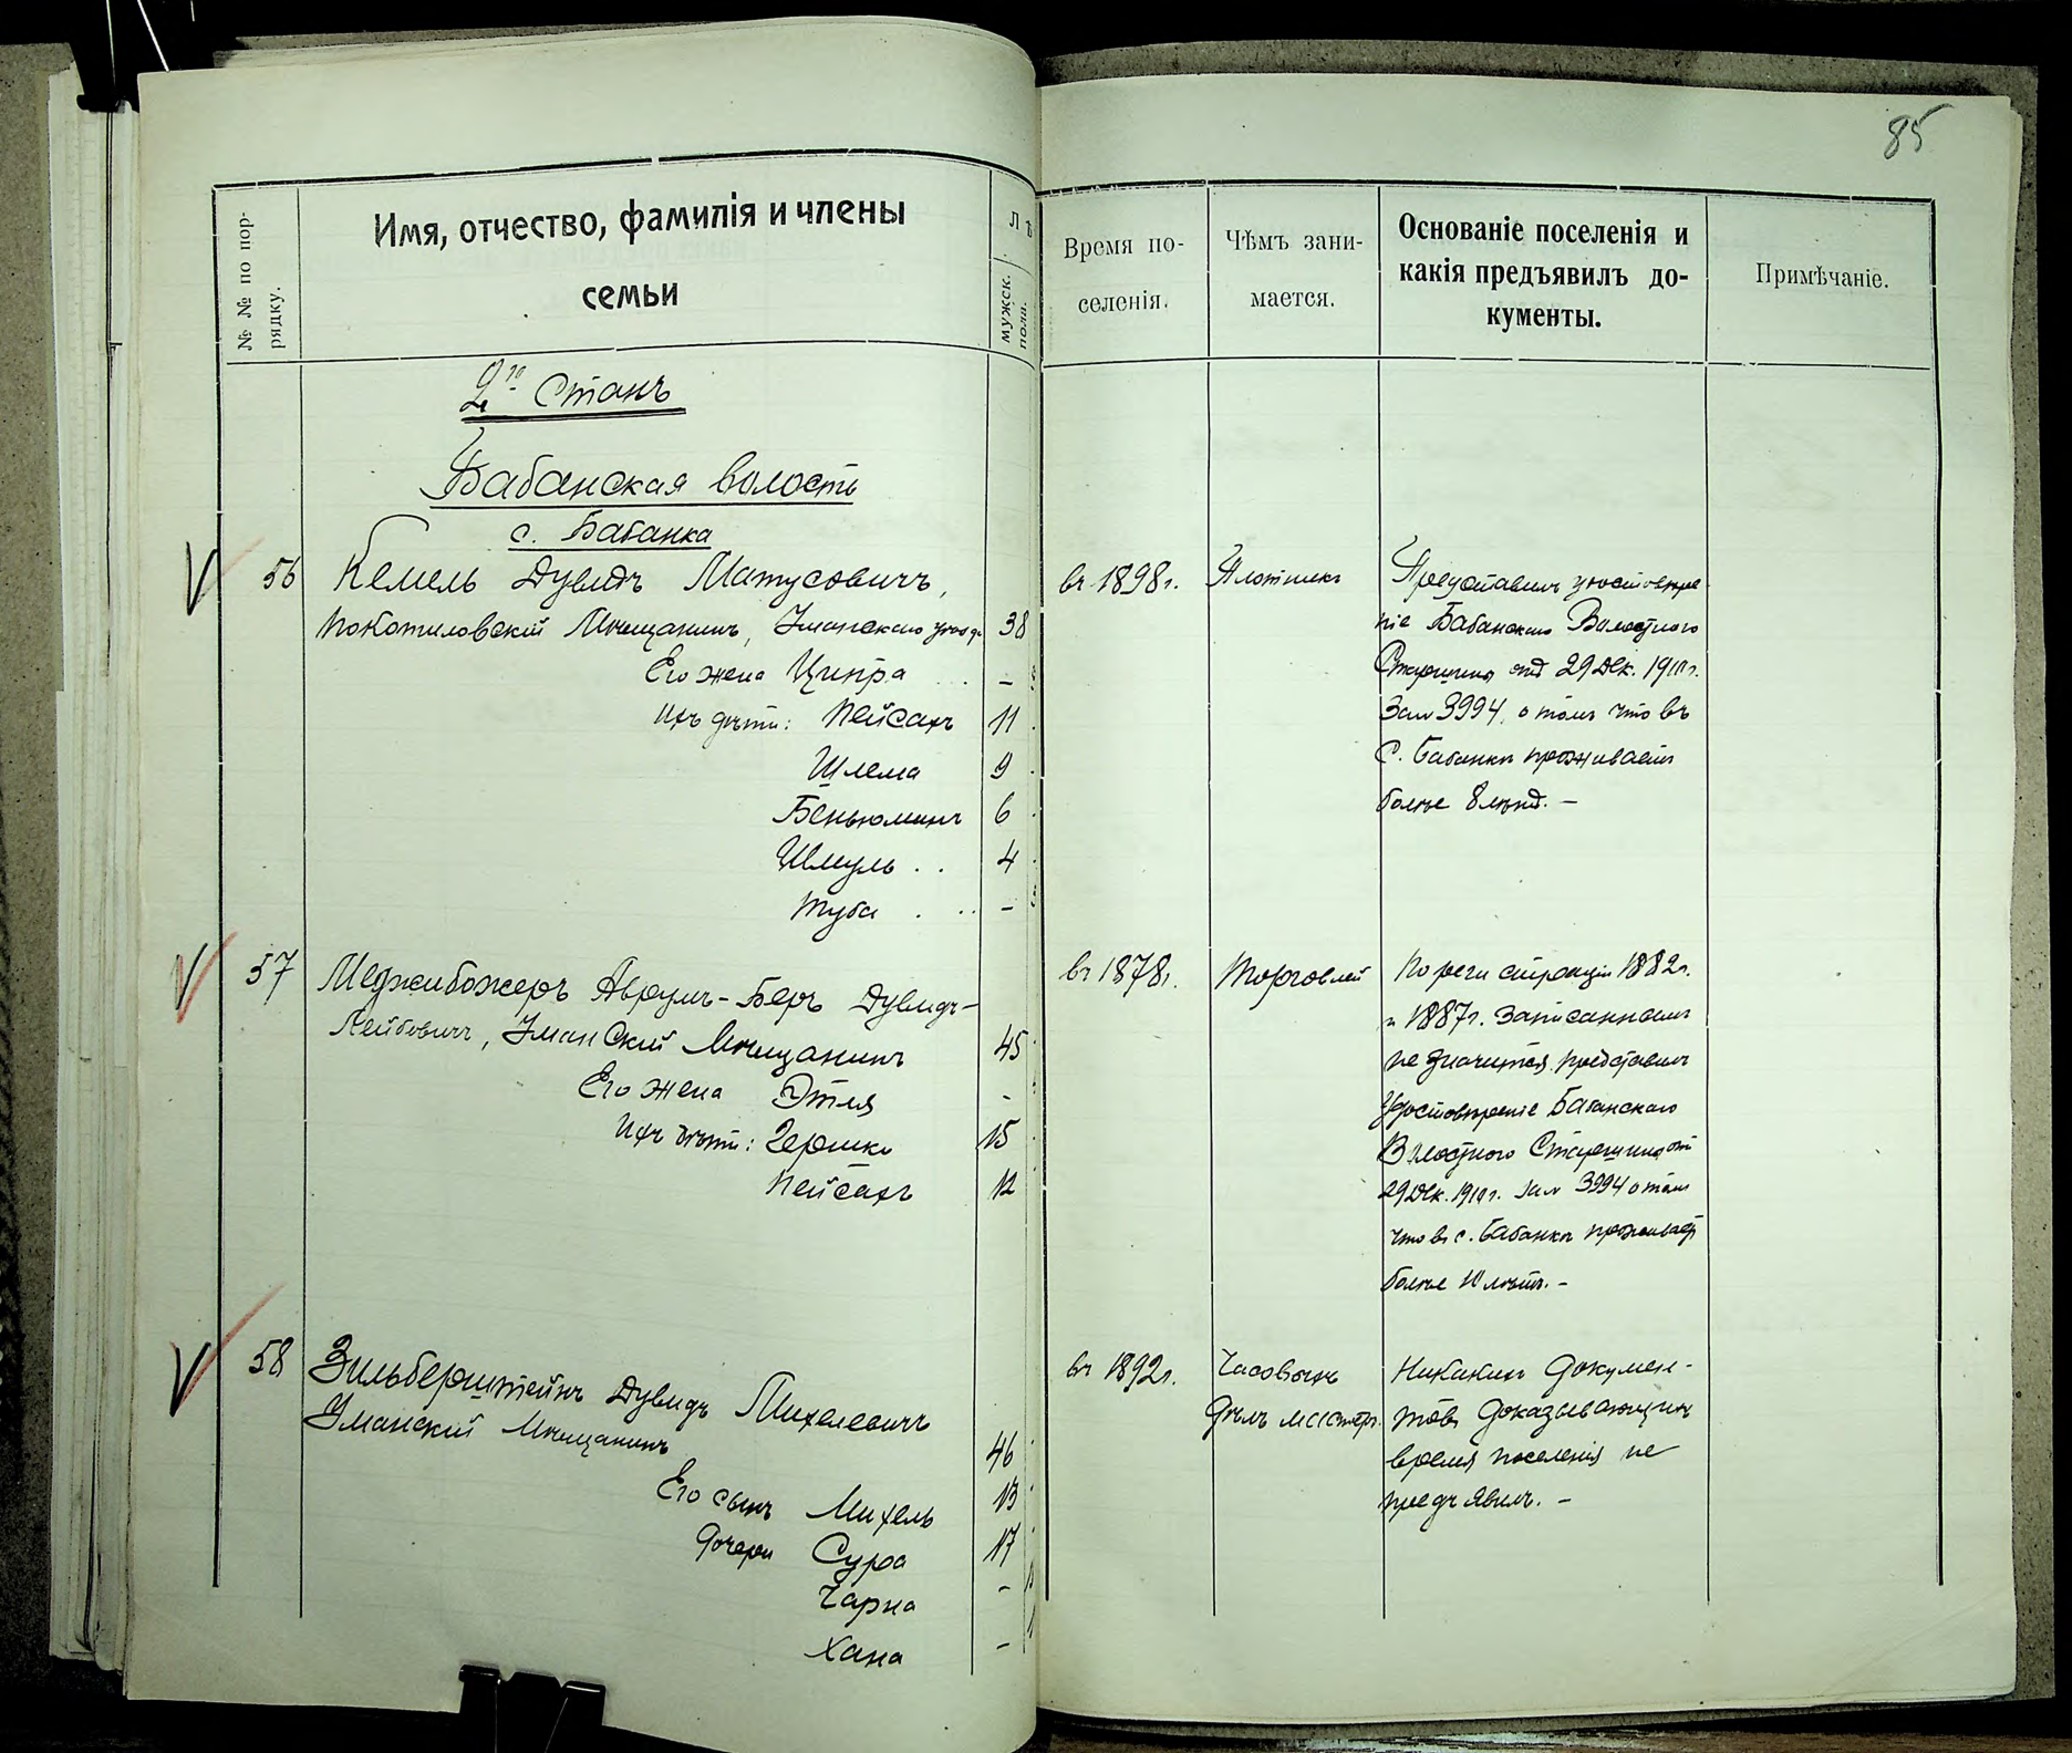 85
№ № по пор-
рядку.
Имя, отчество, фамилія и члены
семьи
Лѣ
мужск.
полн.
Время по-
селенія.
Чѣмъ зани-
мается.
Основаніе поселенія и
какія предъявилъ до-
кументы.
Примѣчаніе.
2го Станъ
Бабанская волость
с. Бабанка
56 Кемель Дувидъ Матусовичъ,
покотиловскій Мѣщанинъ, Уманскаго уѣзда 38
Его жена Ципра -
Ихъ дѣти: Пейсахъ 11
Шлема 9
Беньюминъ 6
Шмуль 4
Туба -
въ 1898г.
Плотникъ
Представилъ удостовѣре-
ніе Бабанскаго Волостного
Старшины отъ 29 Дек. 1910г.
За № 3994, о томъ что въ
С. Бабанкѣ проживаетъ
болѣе 8 лѣтъ. –
57 Меджибожеръ Аврумъ-Беръ Дувидъ-
Лейбовичъ, Уманскій Мѣщанинъ 45
Его жена Этля -
Ихъ дѣти: Гершко 15
Пейсахъ 12
въ 1878г.
Торговлей
По регистраціи 1882г.
и 1887г. записаннымъ
не значится. представилъ
Удостовѣреніе Бабанскаго
Волостного Старшины отъ
29 Дек. 1910г. за № 3994 о томъ
что въ с. Бабанкѣ проживаетъ
болѣе 10 лѣтъ. –
58 Зильберштейнъ Дувидъ Михелевичъ
Уманскій Мѣщанинъ 46
Его сынъ Михель 13
Дочери Сура 17
Чарна -
Хана -
въ 1892г.
Часовыхъ
Дѣлъ мастеръ.
Никакихъ докумен-
товъ доказывающихъ
время поселенія не
предъявилъ. –